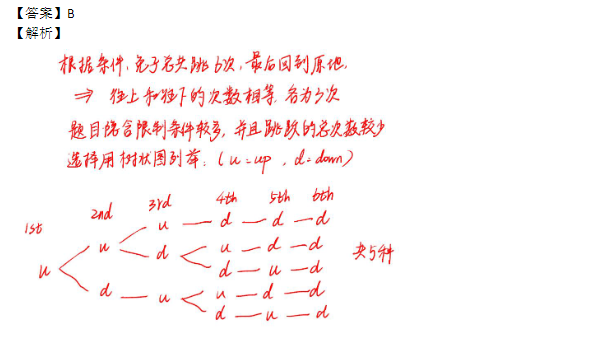 【答案】B
【解析】
根据条件,兔子总共跳6次,最后回到原地,
⇒ 往上和往下的次数相等,各为3次
题目综合限制条件较多,并且跳跃的总次数较少
选择用树状图列举:(u=up , d=down)
1st 2nd 3rd 4th 5th 6th
u — d — d — d
u
d u — d — d
u d — u — d 共5种
d — u u — d — d
d — u — d